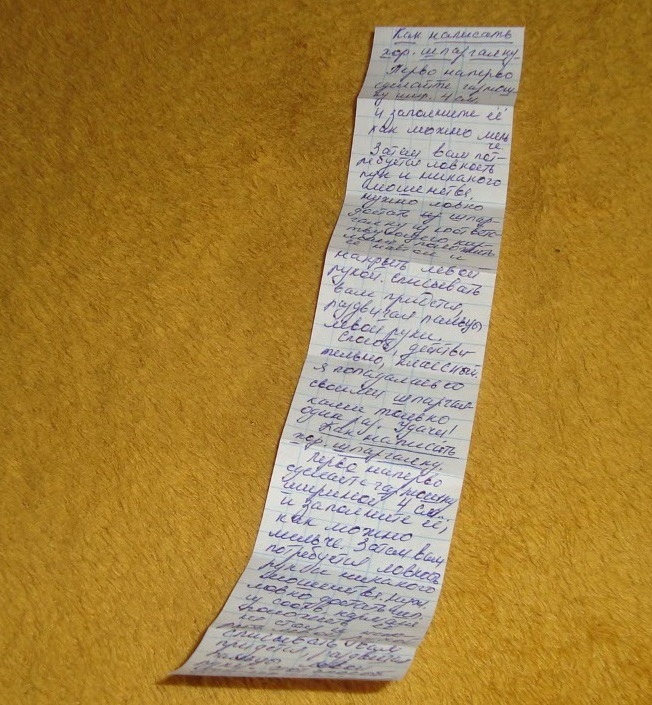 Как написать
хор. шпаргалку.
Перво наперво
сделайте гармош-
ку шир. 4 см.
и заполните её
как можно мень
че
Затем вам пот-
ребуется ловкость
рук и никакого
мошенства.
нужно ловко
достать шпар-
галку из соответс-
твующего кар-
мана, положить
её на стол и
накрыть левой
рукой. Списывать
вам придется,
раздвигая пальцы
левой руки.
Способ, действи
тельно, классный.
я попадалась со
своими шпаргал-
ками только
один раз. Удачи!
Как написать
хор. шпаргалку.
Перво наперво
сделайте гармошку
шириной 4 см.
и заполните её,
как можно
мельче. Затем вам
потребуется ловкость
рук и никакого
мошенства. Нужно
ловко достать шп.
из соотв. кармана
положить
на стол
списывать вам
придется, раздвигая
пальцы левой